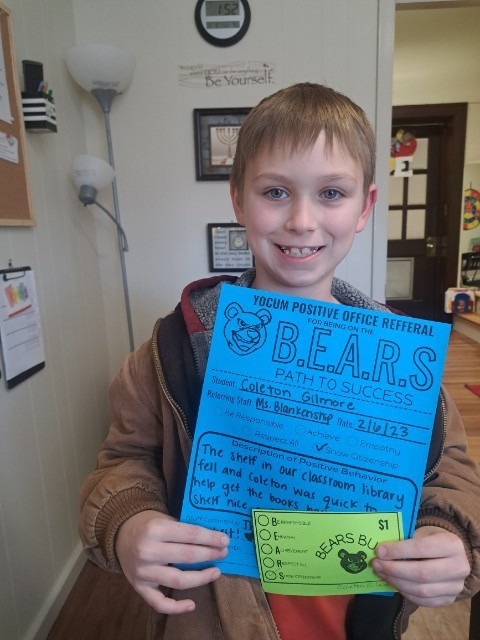 152
Be Yourself
YOCUM POSITIVE OFFICE REFFERAL
FOR BEING ON THE
B.E.A.R.S
PATH TO SUCCESS
Student: Coleton Gilmore
Referring Staff: Ms. Blankenship Date: 2/6/23
Be Responsible Achieve Empathy
Respect All ✓ Show Citizenship
Description of Positive Behavior
The shelf in our classroom library
fell and Coleton was quick to
help get the books
shelf nice
BE RESPONSIBLE $1
EMPATHY
ACHIEVEMENT
RESPECT ALL
SHOW CITIZENSHIP
BEARS BU